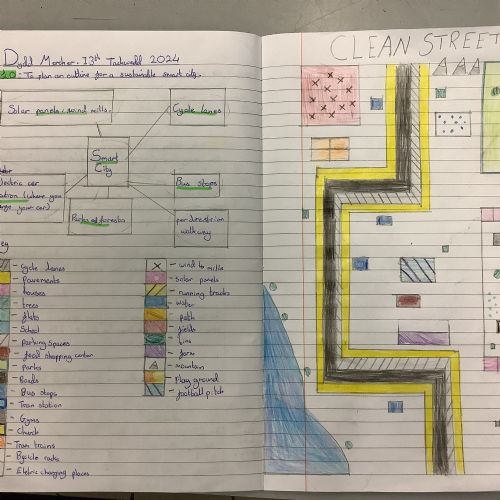 Dydd Mercher. 13th Tachwedd 2024
L.O : To plan an outline for a sustainable smart city.
Solar panels, wind mills.
Cycle lanes
Smart
City
electric car
station (where you
charge your car)
Parks & forests
Bus stops
pedestrian
walkway
Key
- Cycle lanes
- Pavements
- houses
- trees
- flats
- School
- Parking spaces
- food shopping center
- Parks
- Roads
- Bus stops
- Tram station
- Gyms
- Church
- Tram trains
- Bycicle racks
- Eletric charging places
- wind mills
- Solar panels
- running tracks
- water
- path
- fields
- farm
- Mountain
- Play ground
- football pitch
CLEAN STREET